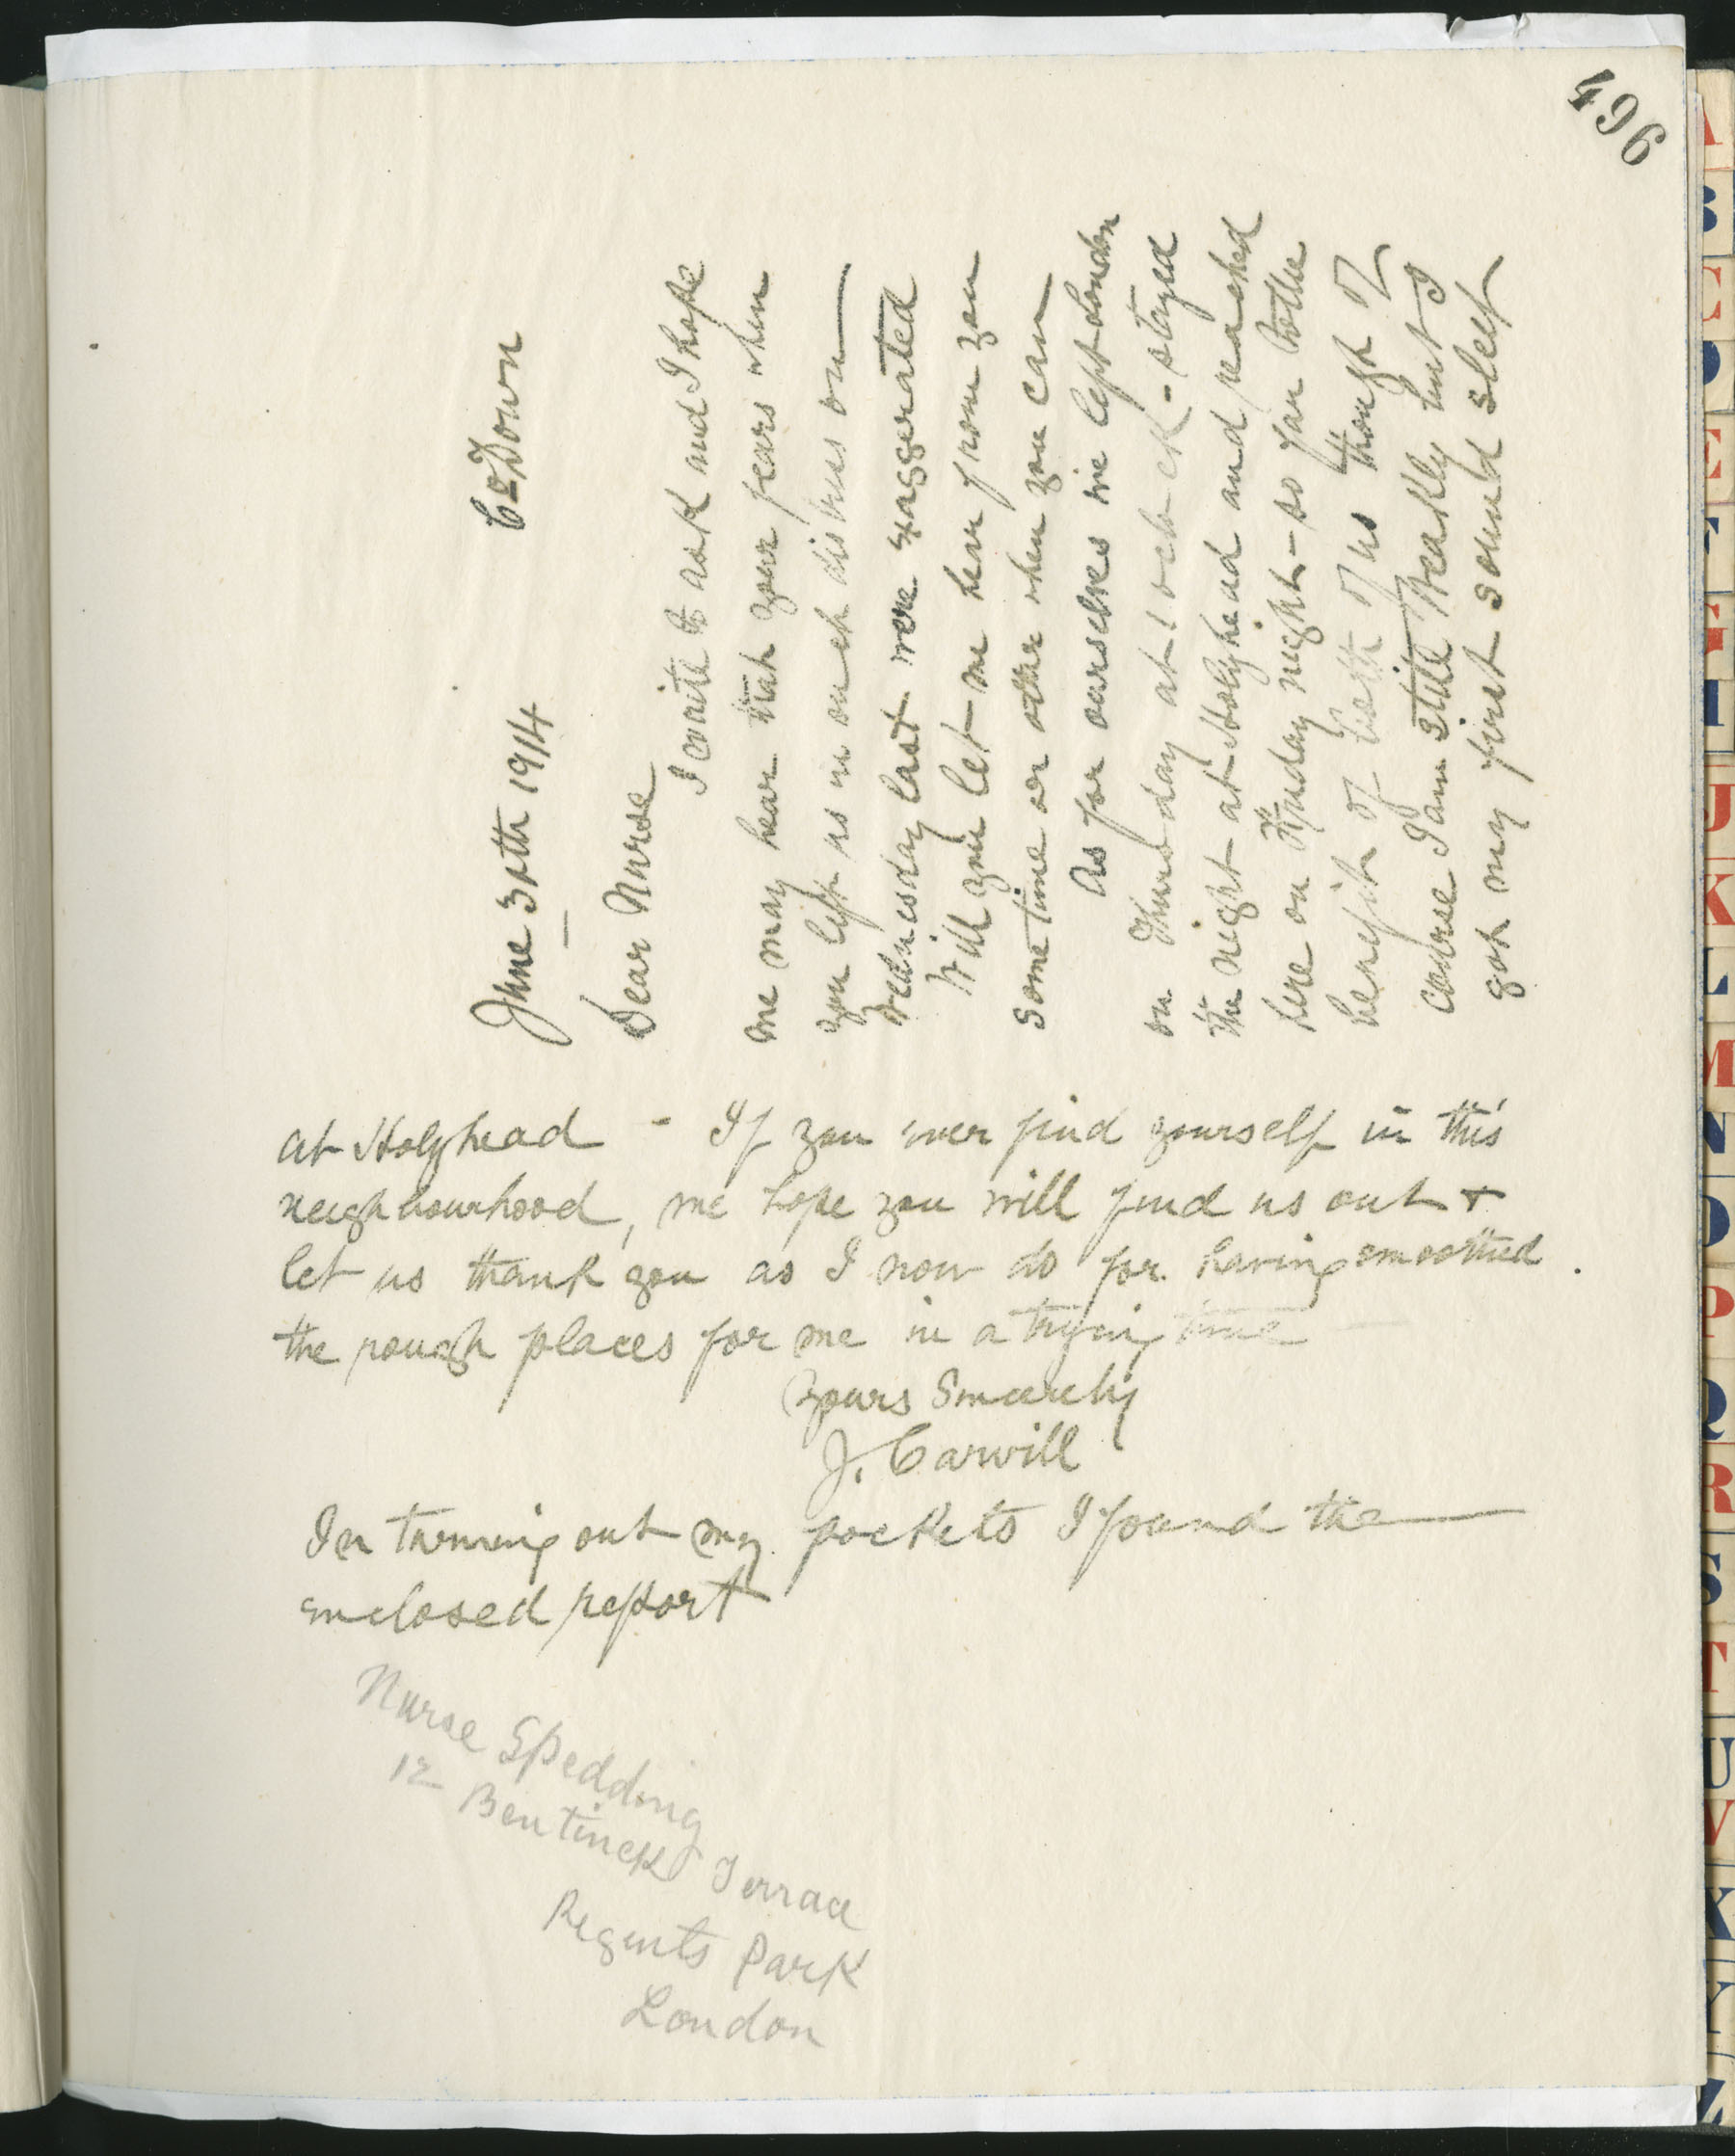 496
June 30th 1914 Co Down
Dear Nurse
I write to ask and I hope
we may hear that your fears when
you left us in such distress on
Wednesday last were exaggerated
Will you let me hear from you
some time or other when you can
As for ourselves we left London
on Thursday at 1 oclock - stayed
the night at Holyhead and reached
here on Friday night - so far the
benefit of both of us though of
course I am still weakly but I
got my first sound sleep
at Holyhead - If you ever find yourself in this
neighbourhood, we hope you will find us out +
let us thank you as I now do for having smoothed
the rough places for me in a trying time
Yours Sincerely
J. Carvill
In turning out my pockets I found the
enclosed report
Nurse Spedding
12 Bentinck Terrace
Regents Park
London